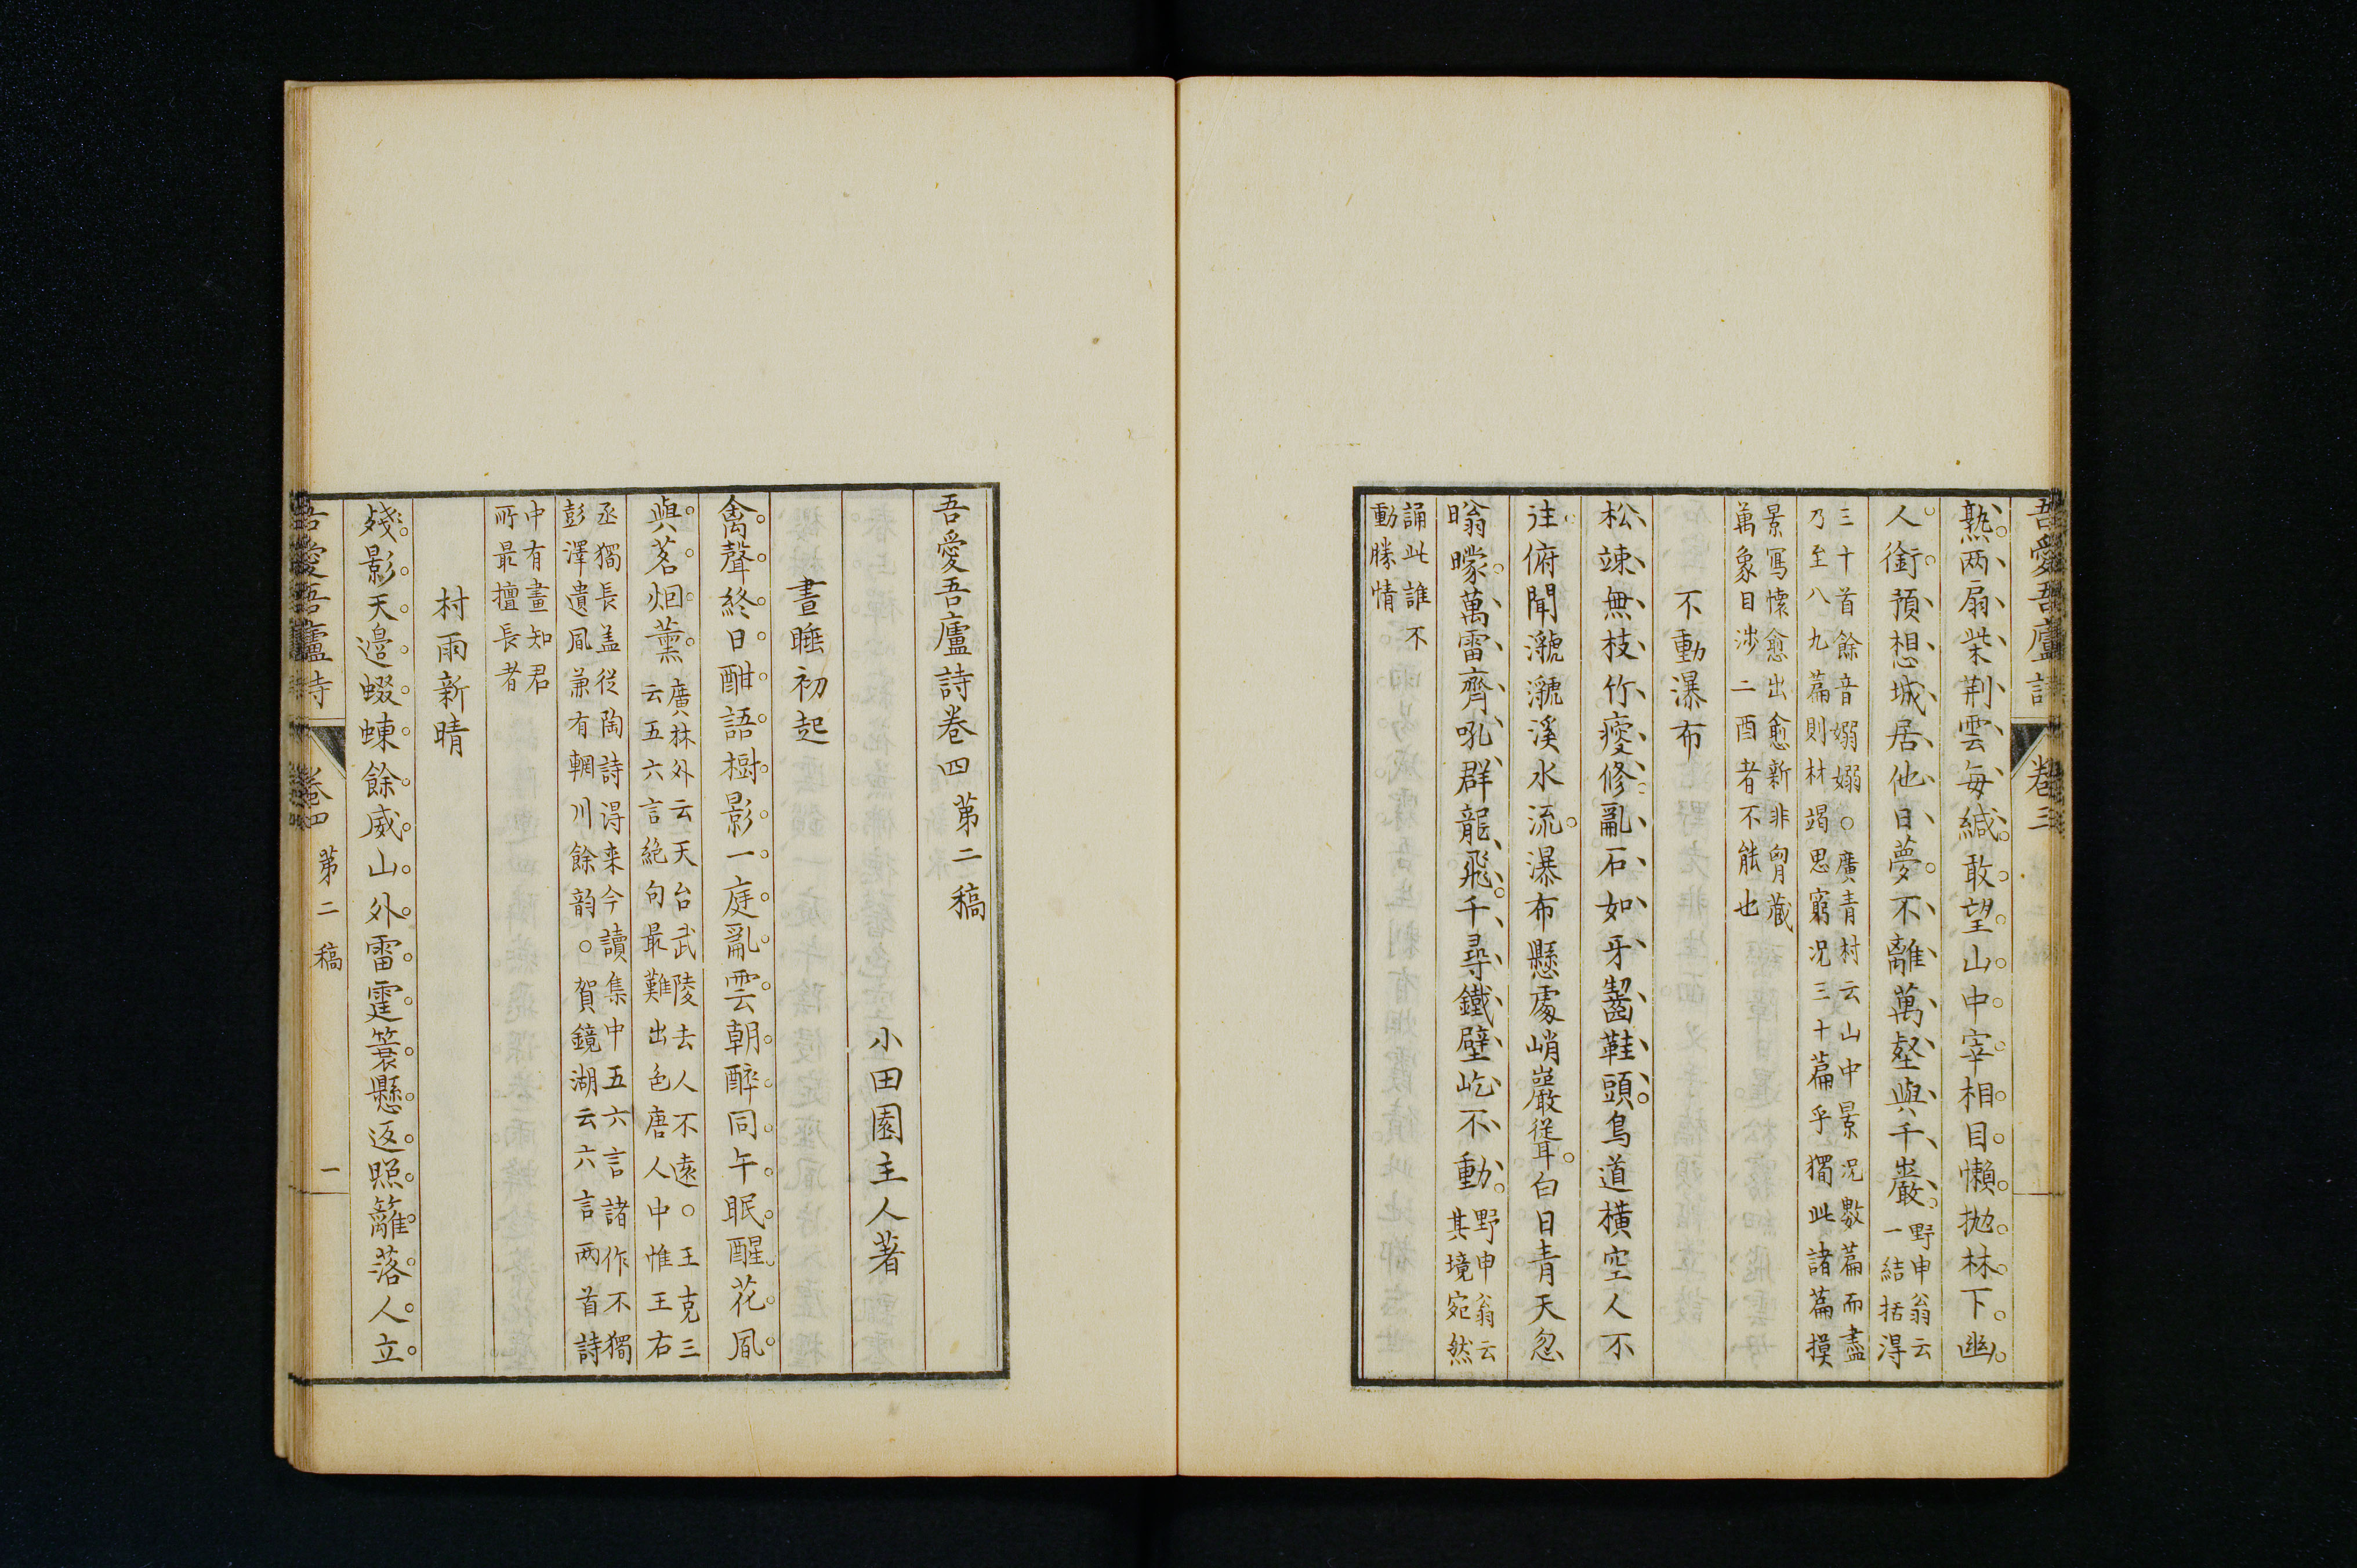 吾愛吾廬詩 卷三
熟两扇柴荆雲每緘敢望山中宰相目懶抛林下幽
人銜預想城居他日夢不離萬壑與千巖野申翁云
一結括得
三十首餘音嫋嫋○廣青村云山中景况數篇而盡
乃至八九篇則材竭思窮况三十篇乎獨此諸篇摸
景寫懷愈出愈新非胷藏
萬象目涉二酉者不能也
不動瀑布
松竦無枝竹瘦修亂石如牙齧鞋頭鳥道橫空人不
往俯聞㶁㶁溪水流瀑布懸處峭巖聳白日青天忽
暡曚萬雷齊吼群龍飛千尋鐵壁屹不動野申翁云
其境宛然
誦此誰不
動勝情
吾愛吾廬詩卷四 第二稿
小田園主人著
晝睡初起
禽聲終日酣語樹影一庭亂雲朝醉同午眠醒花風
與茗烟薰廣林外云天台武陵去人不遠○王克三
云五六言絶句最難出色唐人中惟王右
丞獨長盖從陶詩得来今讀集中五六言諸作不獨
彭澤遺風兼有輞川餘韵○賀鏡湖云六言两首詩
中有畫知君
所最擅長者
村雨新晴
殘影天邉蝃蝀餘威山外雷霆簑懸返照籬落人立
吾愛吾廬詩 卷四 第二稿 一